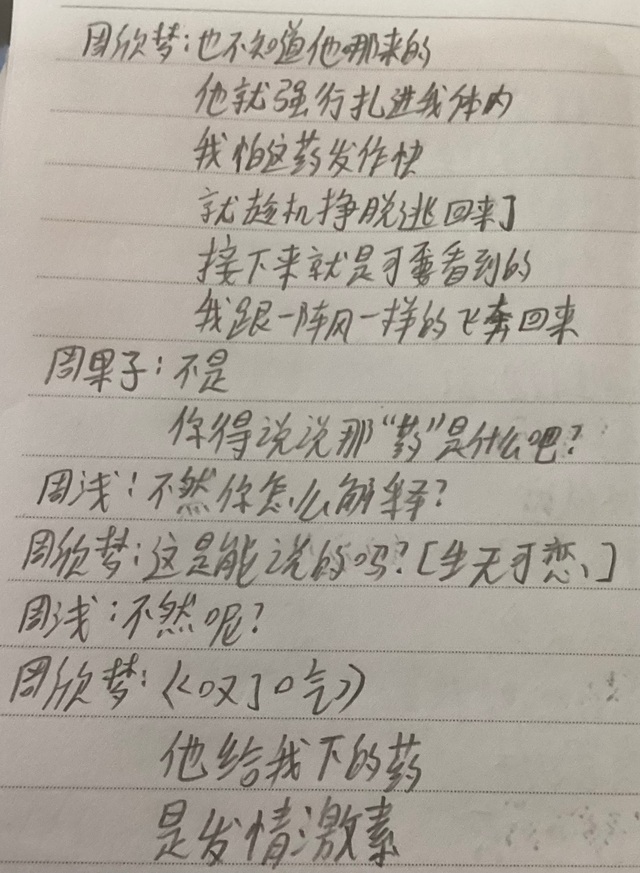 周欣梦:也不知道他哪来的
他就强行扎进我体内
我怕这药发作快
就趁机挣脱逃回来了
接下来就是可要看到的
我跟一阵风一样的飞奔回来
周果子:不是
你得说说那“药”是什么吧?
周浅:不然你怎么解释?
周欣梦:这是能说的吗?[生无可恋]
周浅:不然呢?
周欣梦:《叹了口气》
他给我下的药
是发情激素